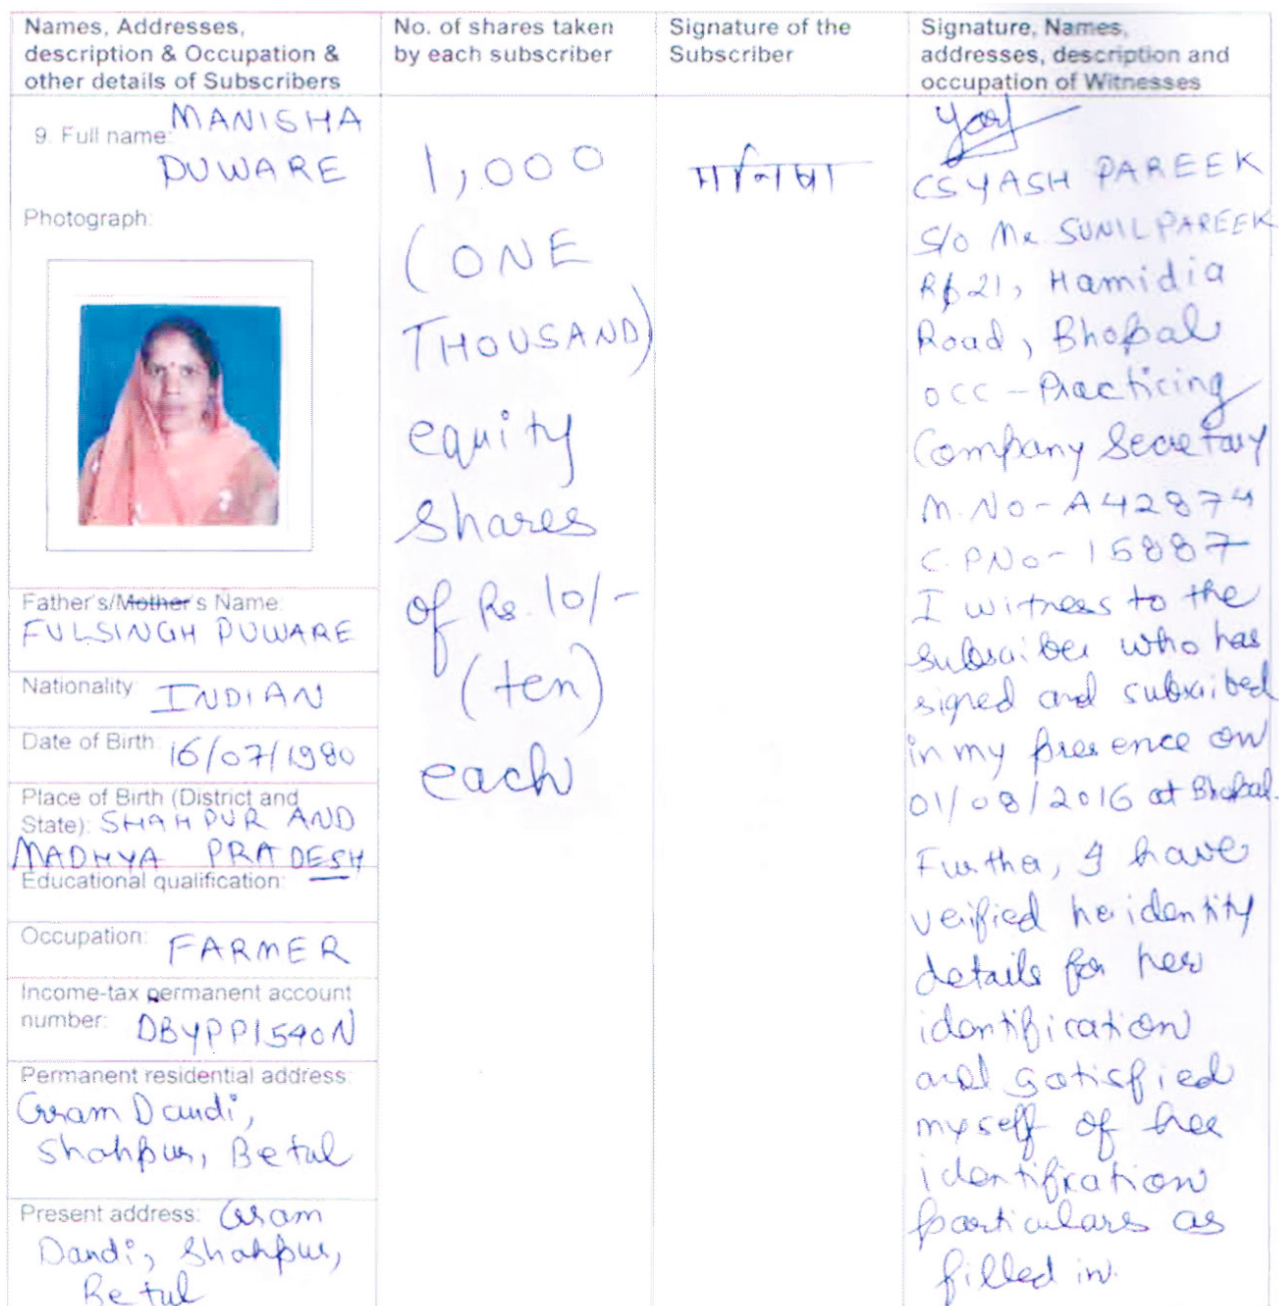 Names, Addresses,
description & Occupation &
other details of Subscribers
No. of shares taken
by each subscriber
Signature of the
Subscriber
Signature, Names,
addresses, description and
occupation of Witnesses
9. Full name: MANISHA
DUWARE
Photograph:
Father's/Mother's Name:
FULSINGH DUWARE
Nationality INDIAN
Date of Birth: 16/07/1980
Place of Birth (District and
State): SHAHPUR AND
MADHYA PRADESH
Educational qualification:
Occupation: FARMER
Income-tax permanent account
number: DBYPP1540N
Permanent residential address:
Gram Dandi,
Shahpur, Betul
Present address: Gram
Dandi, Shahpur,
Betul
1,000
(ONE
THOUSAND)
equity
shares
of Rs. 10/-
(ten)
each
मनिषा
Yash
CS YASH PAREEK
S/o Mr. SUNIL PAREEK
21, Hamidia
Road, Bhopal
OCC - Practicing
Company Secretary
M.No - A42874
C.P No - 15887
I witness to the
subscriber who has
signed and subscribed
in my presence on
01/08/2016 at Bhopal.
Further, I have
verified her identity
details for her
identification
and satisfied
myself of her
identification
particulars as
filled in.